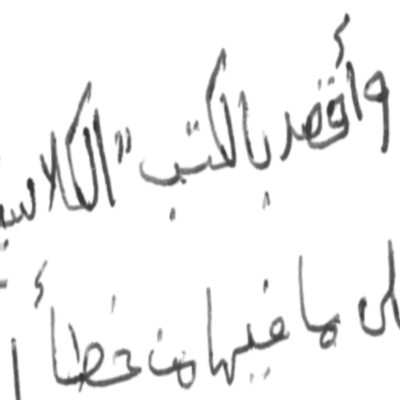 وأقصد بالكتب "الكلاسي
لى ما فيها من خطأ